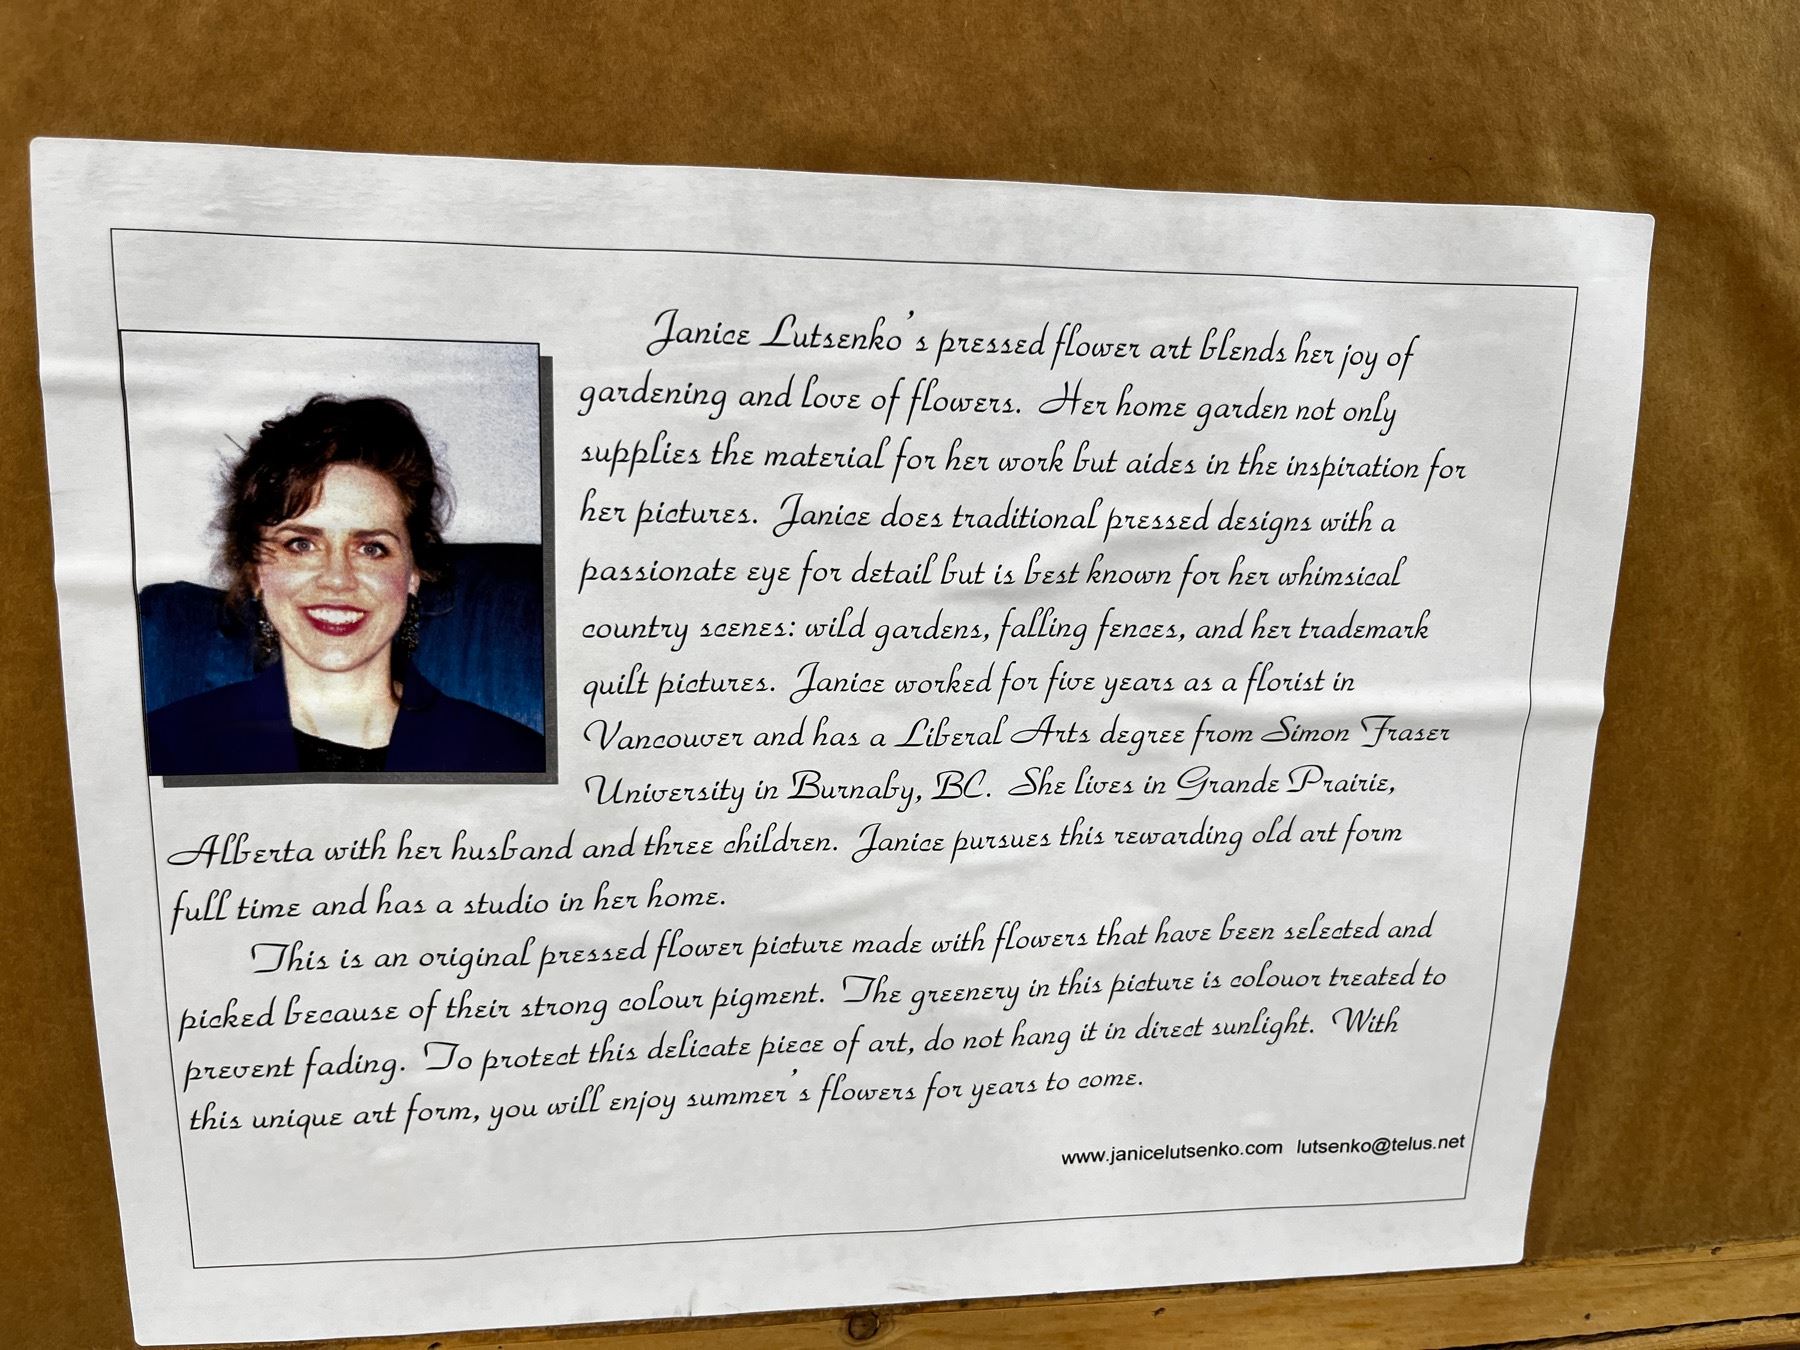 Janice Lutsenko's pressed flower art blends her joy of
gardening and love of flowers. Her home garden not only
supplies the material for her work but aides in the inspiration for
her pictures. Janice does traditional pressed designs with a
passionate eye for detail but is best known for her whimsical
country scenes: wild gardens, falling fences, and her trademark
quilt pictures. Janice worked for five years as a florist in
Vancouver and has a Liberal Arts degree from Simon Fraser
University in Burnaby, BC. She lives in Grande Prairie,
Alberta with her husband and three children. Janice pursues this rewarding old art form
full time and has a studio in her home.
This is an original pressed flower picture made with flowers that have been selected and
picked because of their strong colour pigment. The greenery in this picture is colouor treated to
prevent fading. To protect this delicate piece of art, do not hang it in direct sunlight. With
this unique art form, you will enjoy summer's flowers for years to come.
www.janicelutsenko.com lutsenko@telus.net